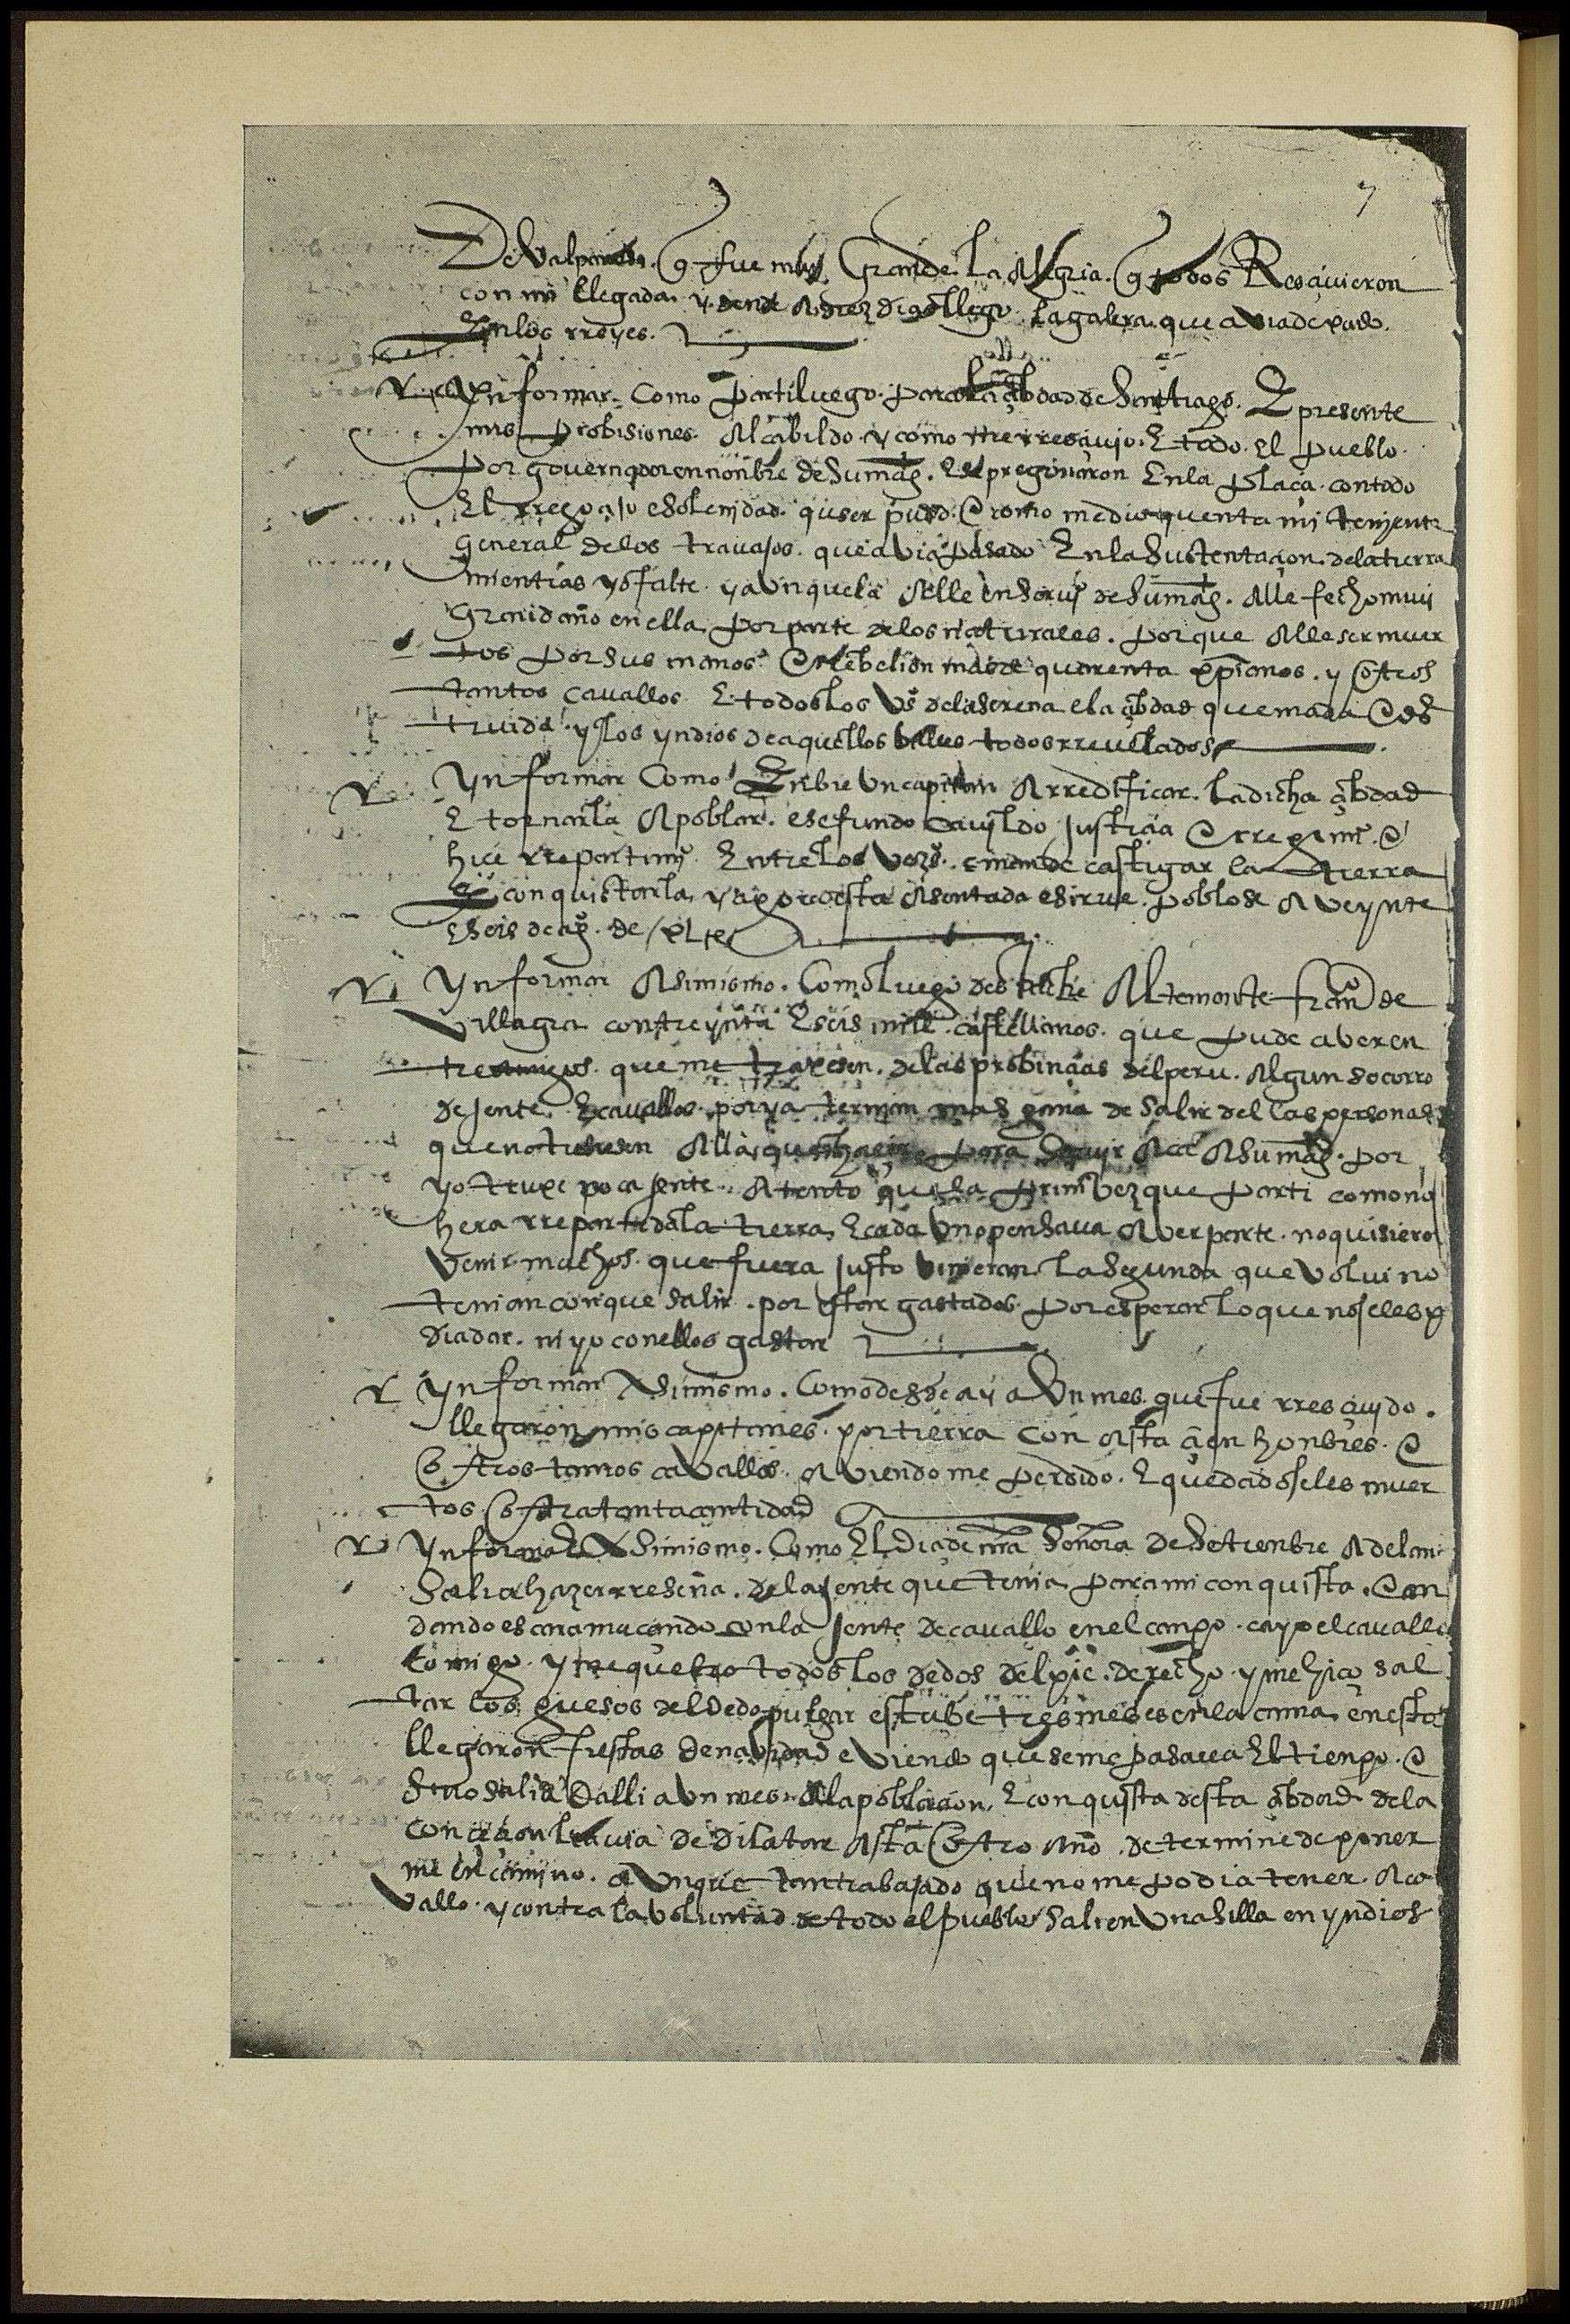 7
De Valparaiso. q fue muy Grande. La Alegria. q todos Resciuieron
con mi llegada. y. dende A diez dias llego. la galera. que avia dexado.
En los rreyes.
Ynformar. Como Parti luego. para la cibdad de Santiago. E presente
mis probisiones. Al cabildo. y como me rresciuio. E todo. El pueblo.
por governador en nonbre de su mag. E se pregonaron En la plaça. con todo
El rregozijo e solenidad. que ser pudo. E como me dio quenta mi tenjente
General de los travajos. que avia pasado En la Sustentacion. de la tierra
mientras yo falte. y aunque la Alle en seruj de su mag. Alle fecho muy
Gran daño en ella. por parte de los naturales. porque Alle ser muer
tos por sus manos E rrebelion mas de quarenta xpianos. y otros
tantos cavallos. E todos los Vs de la serena e la cibdad quemada E des
truida. y los yndios de aquellos valles todos rrevelados
Ynformar Como Enbie un capitan A rredificar. la dicha cibdad
E tornarla A poblar. e se fundo cavjldo justicia E rregimi. E
hice rrepartimi. Entre los Vezs. e mande castigar la tierra
E conquistarla. y agora esta Asentada e sirue. Poblose A veynte
E seis de ag. de
Ynformar Asimismo. Como luego despache Al teniente fran de
Villagra con treynta E seis mill. castellanos. que pude aver en
tre amigos. que me traxesen. de las probincias del peru. Algun socorro
de jente. E cavallos. por ya ternian mas gana de salir dellas personas
que no tuviesen Alla que hazer para seruir Aca A su mag. por
yo truxe poca jente. Atento que la prim vez que parti como no
hera rrepartida la tierra. E cada uno pensava Aver parte. no quisiero
venir muchos. que fuera justo vinieran. La Segunda que volui no
tenian con que salir. por estar gastados. por esperar lo que no se les p
dia dar. ni yo con ellos gastar
Ynformar Asimismo. Como desde ay a Un mes. que fue rresciuido.
llegaron mis capitanes. por tierra con Asta cien honbres. E
otros tantos cavallos. Aviendome perdido. E quedadoseles muer
tos otra tanta cantidad
Ynformar Asimismo. Como El dia de nra Señora de Setienbre Adelan
Sali a hazer rreseña. de la jente que tenia para mi conquista. E an
dando escaramuçando con la jente de cavallo en el canpo. cayo el cavallo
comigo. y me quebro todos los dedos del pie. derecho. y me hizo sal
tar los guesos del dedo pulgar estube tres meses en la cama. en esto
llegaron fiestas de navidad e viendo que se me pasava El tienpo. E
si no salia dalli a un mes A la poblacion. E conquista desta cibdad de la
concecion la avia de dilatar Asta otro Año. determine de poner
me en camino. Aunque tan trabajado que no me podia tener. A ca
vallo. y contra la voluntad de todo el pueblo Sali en Una silla en yndios